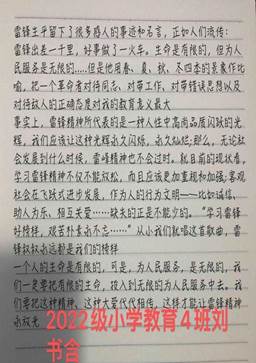 雷锋生平留下了很多感人的事迹和名言，正如人们流传：
雷锋出差一千里，好事做了一火车。生命是有限的，但为人
民服务是无限的……但是他用春、夏、秋、冬四季的景象作比
喻，把一个革命者对待同志、对待工作、对带错误思想以及
对待敌人的正确态度对我的教育意义最大
事实上，雷锋精神所代表的是一种人性中高尚品质闪跃的光
辉，我们应该让这种光辉永久闪烁，永久灿烂；那么，无论社
会发展到什么时候，雷峰精神也不会过时。就目前的现状看，
学习雷锋精神不仅不能放松，而且应该更加重视和加强；客观
社会在飞跃式进步发展，作为人的行为文明——比如诚信、
助人为乐、相互关爱……缺失的正是不能少的。“学习雷锋
好榜样，艰苦朴素永不忘……”从小我们就唱这首歌曲，雷
锋叔叔永远都是我们的榜样
一个人的生命是有限的，可是，为人民服务，是无限的，我
们一定要把有限的生命，投入到无限的为人民服务中去。我
们要把这种精神、这种大爱代代相传，这样才能让雷锋精神
永放光
2022级小学教育4班刘
书含